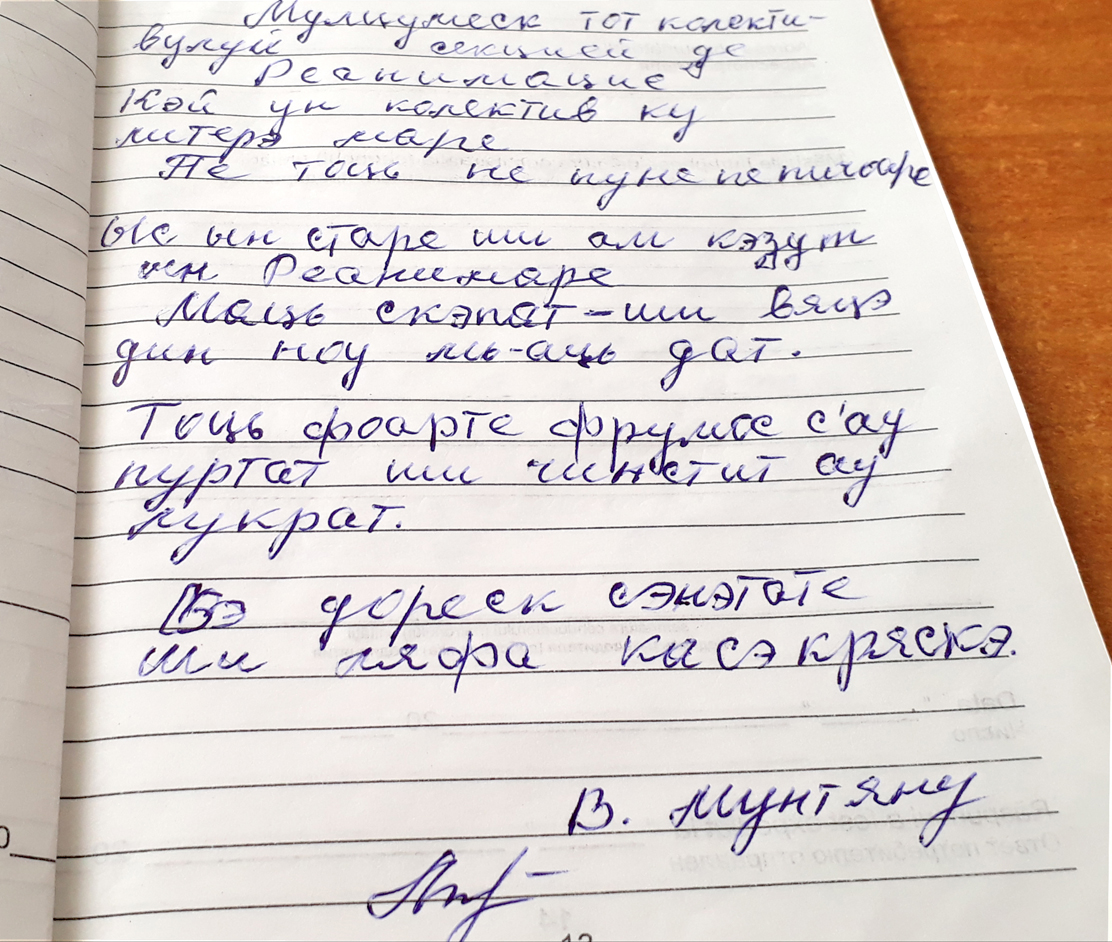 Мулцумеск тот колекти-
вулуй секцией де
Реанимацие
Кэй ун колектив ку
литерэ маре
Пе тоць не пуне пе пичоаре
ын старе ши ам кэзут
ын Реанимаре
Маць скэпат-ши вяцэ
дин ноу мь-аць дат.
Тоць фоарте фрумос с'ау
пуртат ши чинстит ау
лукрат.
Вэ дореск сэнэтате
ши ляфа ка сэ кряскэ.
В. Мунтяну